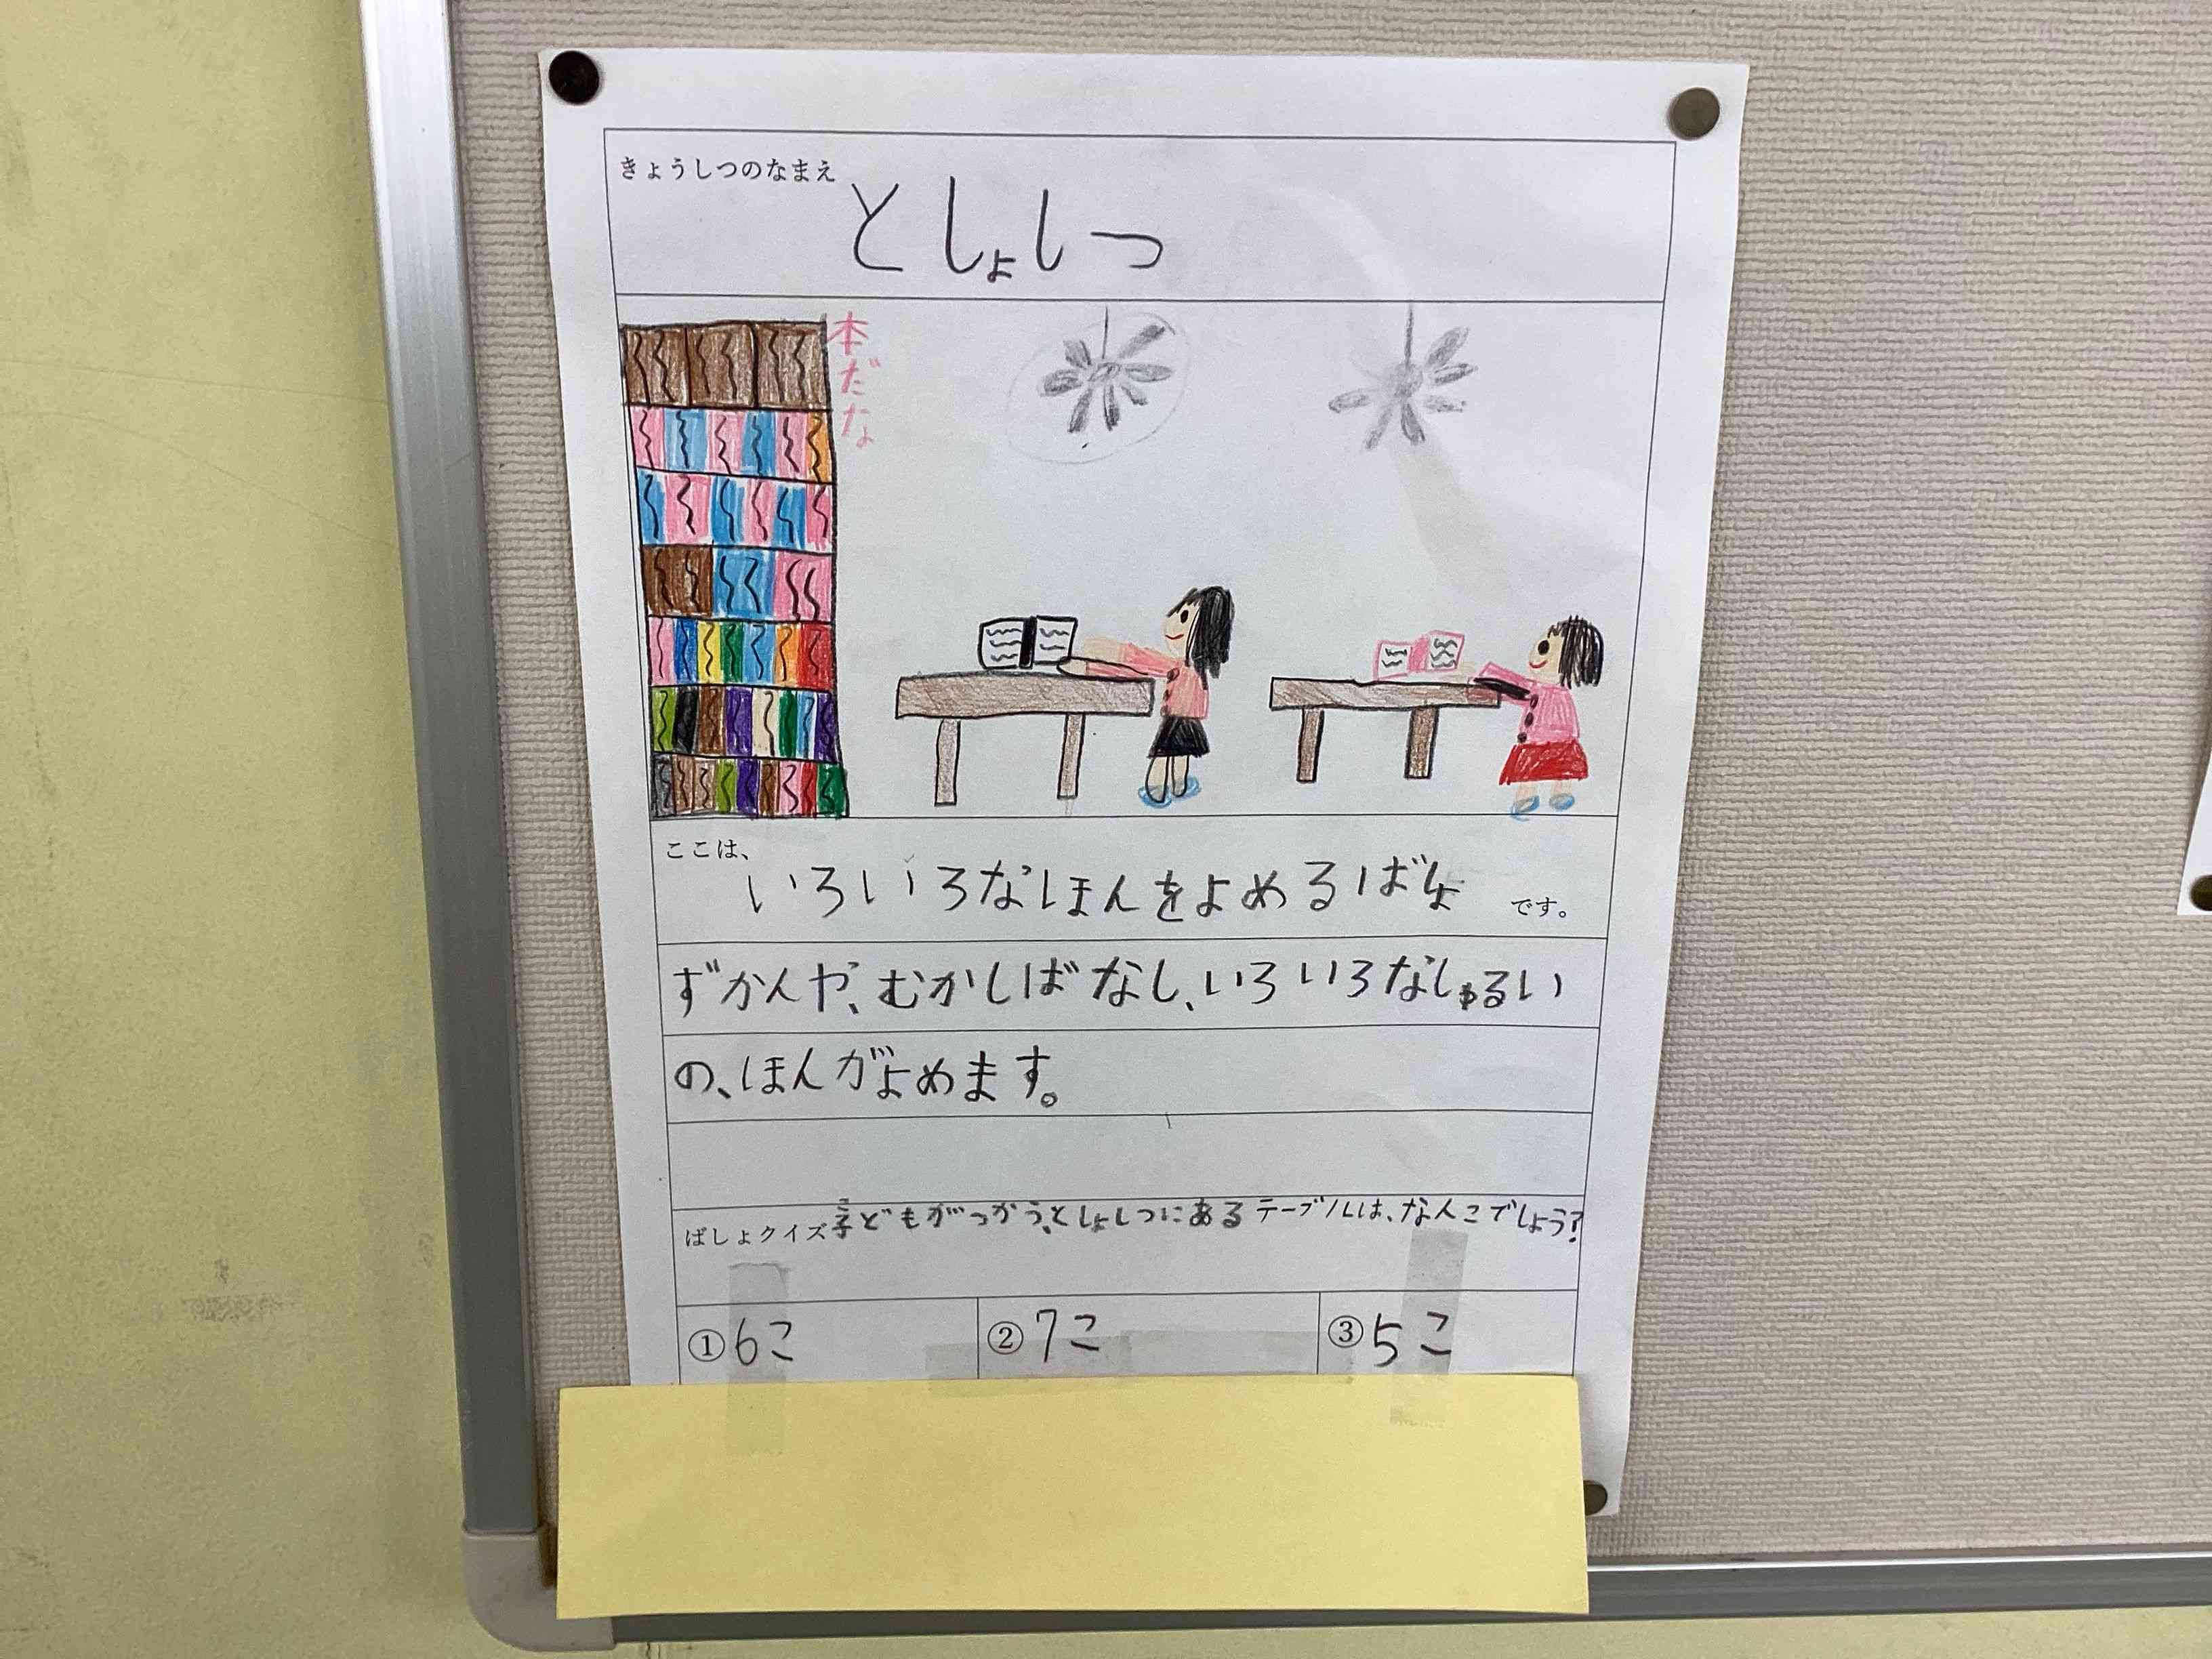 きょうしつのなまえ
としょしつ
本だな
ここは、
いろいろなほんをよめるばしょ
です。
ずかんや、むかしばなし、いろいろなしゅるい
の、ほんがよめます。
ばしょクイズ
子どもがつかう、としょしつにあるテーブルは、なんこでしょう?
①6こ
②7こ
③5こ